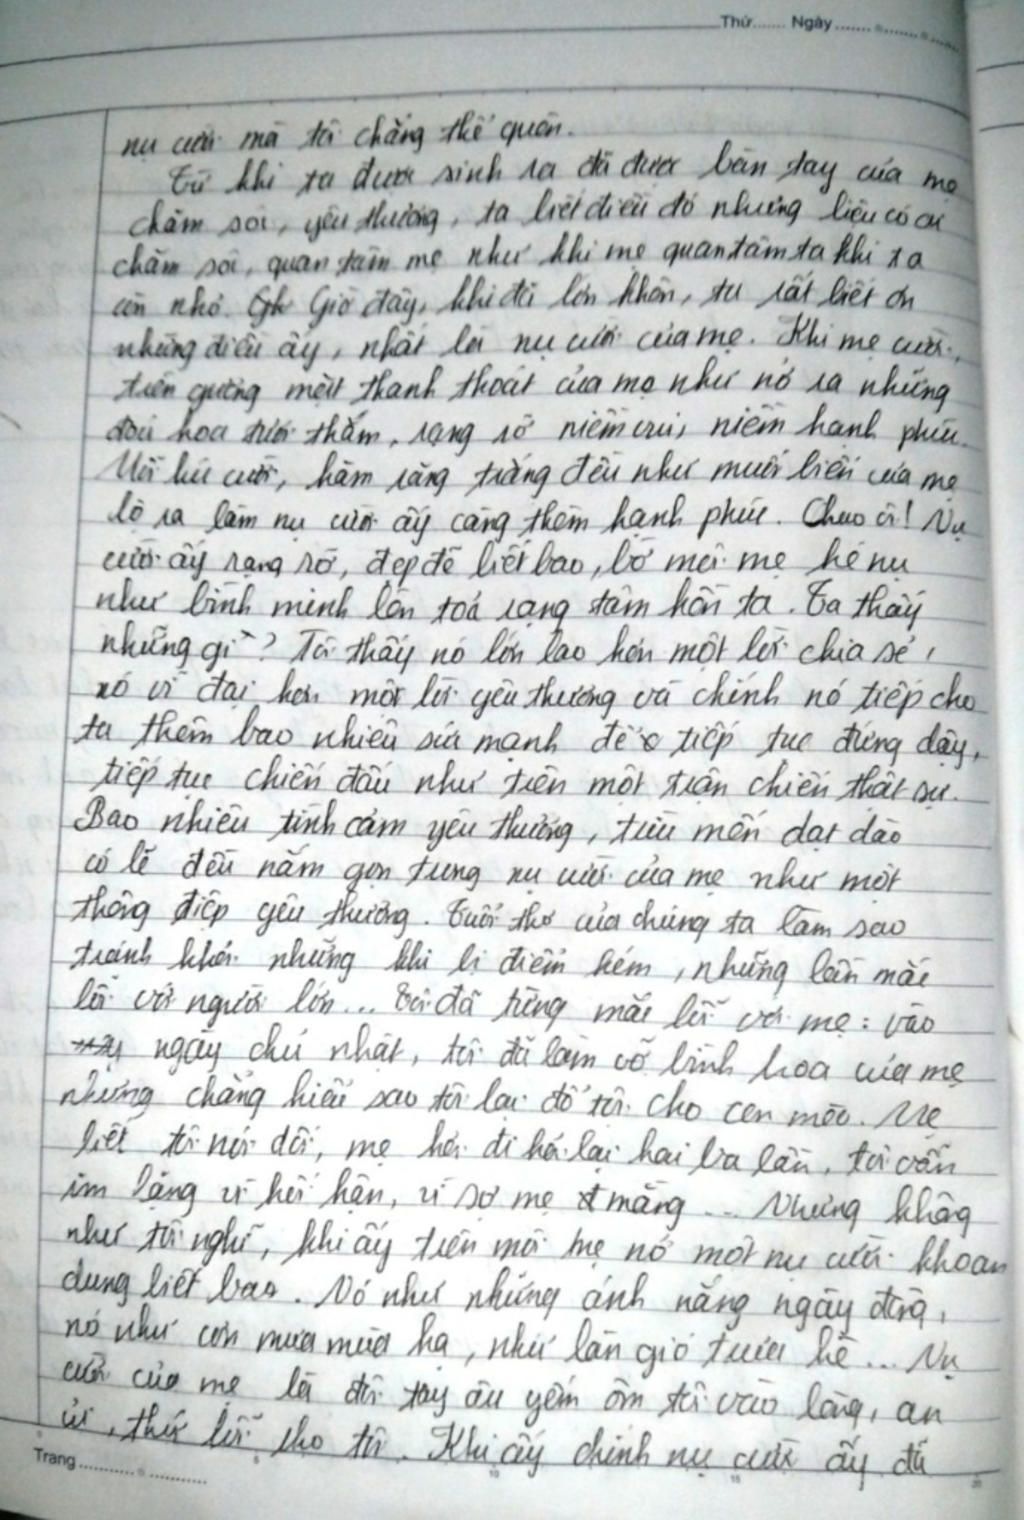 Thứ....... Ngày.......
nụ cười mà tôi chẳng thể quên.
Từ khi ta được sinh ra đã được bàn tay của mẹ
chăm sóc, yêu thương, ta biết điều đó nhưng liệu có ai
chăm sóc, quan tâm mẹ như khi mẹ quan tâm ta khi ta
còn nhỏ. Giờ đây, khi đã lớn khôn, ta rất biết ơn
những điều ấy, nhất là nụ cười của mẹ. Khi mẹ cười,
trên gương mặt thanh thoát của mẹ như nở ra những
đoá hoa tươi thắm, rạng rỡ niềm vui, niềm hạnh phúc.
Mỗi lúc cười, hàm răng trắng đều như muối biển của mẹ
lộ ra làm nụ cười ấy càng thêm hạnh phúc. Chao ôi! Nụ
cười ấy rạng rỡ, đẹp đẽ biết bao, bờ môi mẹ hé nụ
như bình minh lên toả rạng tâm hồn ta. Ta thấy
những gì? Tôi thấy nó lớn lao hơn một lời chia sẻ,
nó vĩ đại hơn một lời yêu thương và chính nó tiếp cho
ta thêm bao nhiêu sức mạnh để tiếp tục đứng dậy,
tiếp tục chiến đấu như trên một trận chiến thật sự.
Bao nhiêu tình cảm yêu thương, trìu mến dạt dào
có lẽ đều nằm gọn trong nụ cười của mẹ như một
thông điệp yêu thương. Tuổi thơ của chúng ta làm sao
tránh khỏi những khi bị điểm kém, những lần mắc
lỗi với người lớn... Tôi đã từng mắc lỗi với mẹ: vào
ngày chủ nhật, tôi đã làm vỡ bình hoa của mẹ
nhưng chẳng hiểu sao tôi lại đổ tội cho con mèo. Mẹ
biết tôi nói dối, mẹ hỏi đi hỏi lại hai ba lần, tôi vẫn
im lặng vì hối hận, vì sợ mẹ mắng... Nhưng không
như tôi nghĩ, khi ấy trên môi mẹ nở một nụ cười khoan
dung biết bao. Nó như những ánh nắng ngày đông,
nó như cơn mưa mùa hạ, như làn gió trưa hè... Nụ
cười của mẹ là đôi tay âu yếm ôm tôi vào lòng, an
ủi, thứ lỗi cho tôi. Khi ấy chính nụ cười ấy đã
Trang.......